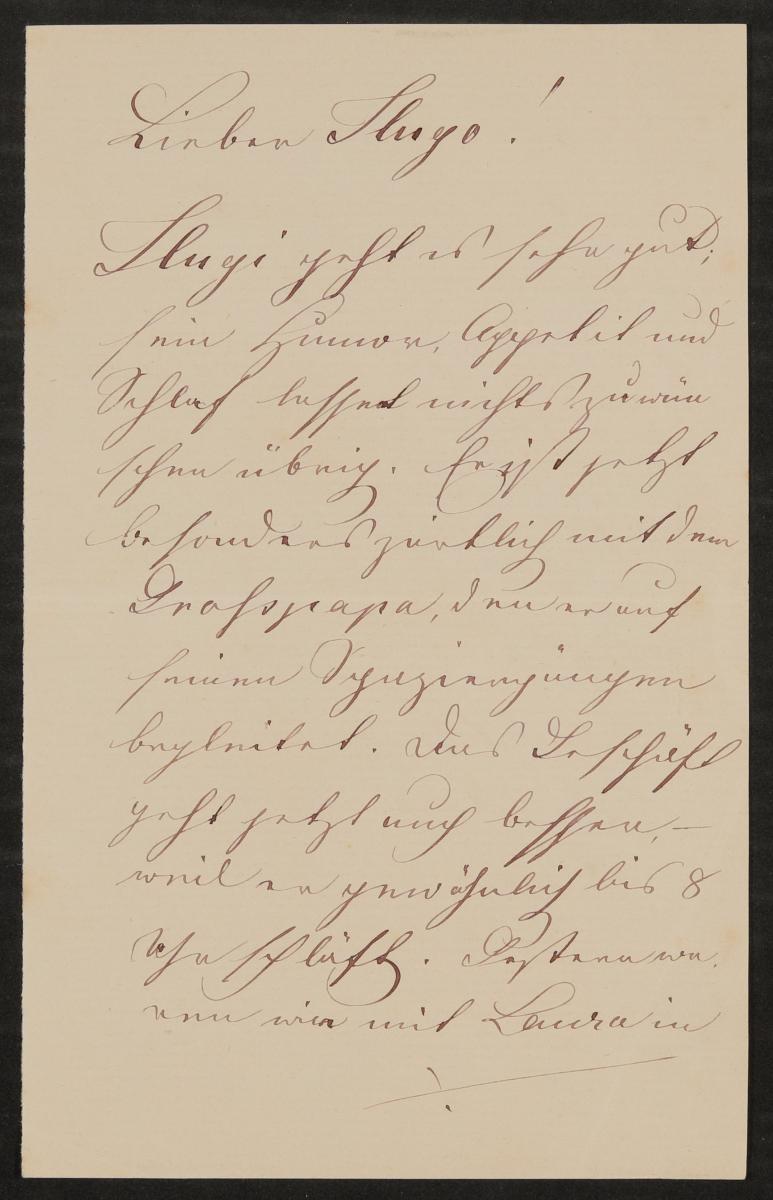 Lieber Hugo!
Hugi geht es sehr gut;
sein Humor, Appetit und
Schlaf lassen nichts zu wün
schen übrig. Er ist jetzt
besonders zärtlich mit dem
Grosspapa, den er auf
seinen Spaziergängen
begleitet. Das Geschäft
geht jetzt auch besser, –
weil er gewöhnlich bis 8
Uhr schläft. Gestern wa-
ren wir mit Laura in